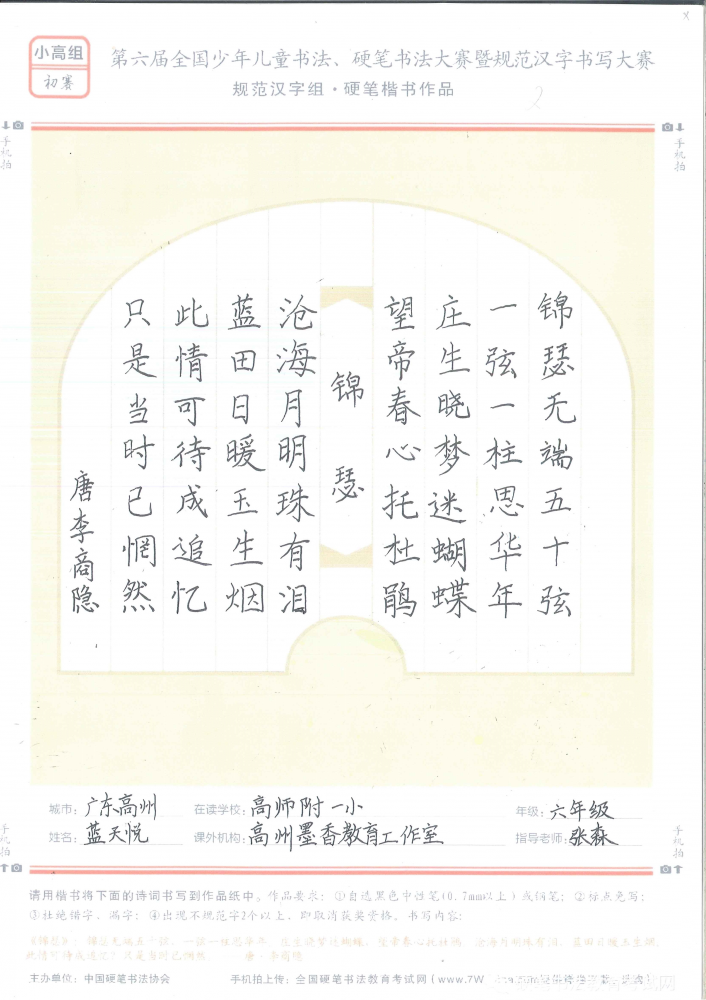 小高组
初赛
第六届全国少年儿童书法、硬笔书法大赛暨规范汉字书写大赛
规范汉字组·硬笔楷书作品
2
手机拍
手机拍
锦瑟无端五十弦
一弦一柱思华年
庄生晓梦迷蝴蝶
望帝春心托杜鹃
锦瑟
沧海月明珠有泪
蓝田日暖玉生烟
此情可待成追忆
只是当时已惘然
唐李商隐
城市：广东高州 在读学校：高师附一小 年级：六年级
姓名：蓝天悦 课外机构：高州墨香教育工作室 指导老师：张森
手机拍
手机拍
请用楷书将下面的诗词书写到作品纸中。作品要求：①自选黑色中性笔(0.7mm以上)或钢笔；②标点免写；
③杜绝错字、漏字；④出现不规范字2个以上，即取消获奖资格。书写内容：
《锦瑟》：锦瑟无端五十弦，一弦一柱思华年。庄生晓梦迷蝴蝶，望帝春心托杜鹃。沧海月明珠有泪，蓝田日暖玉生烟。
此情可待成追忆？只是当时已惘然。——唐·李商隐
主办单位：中国硬笔书法协会 手机拍上传：全国硬笔书法教育考试网（www.7W